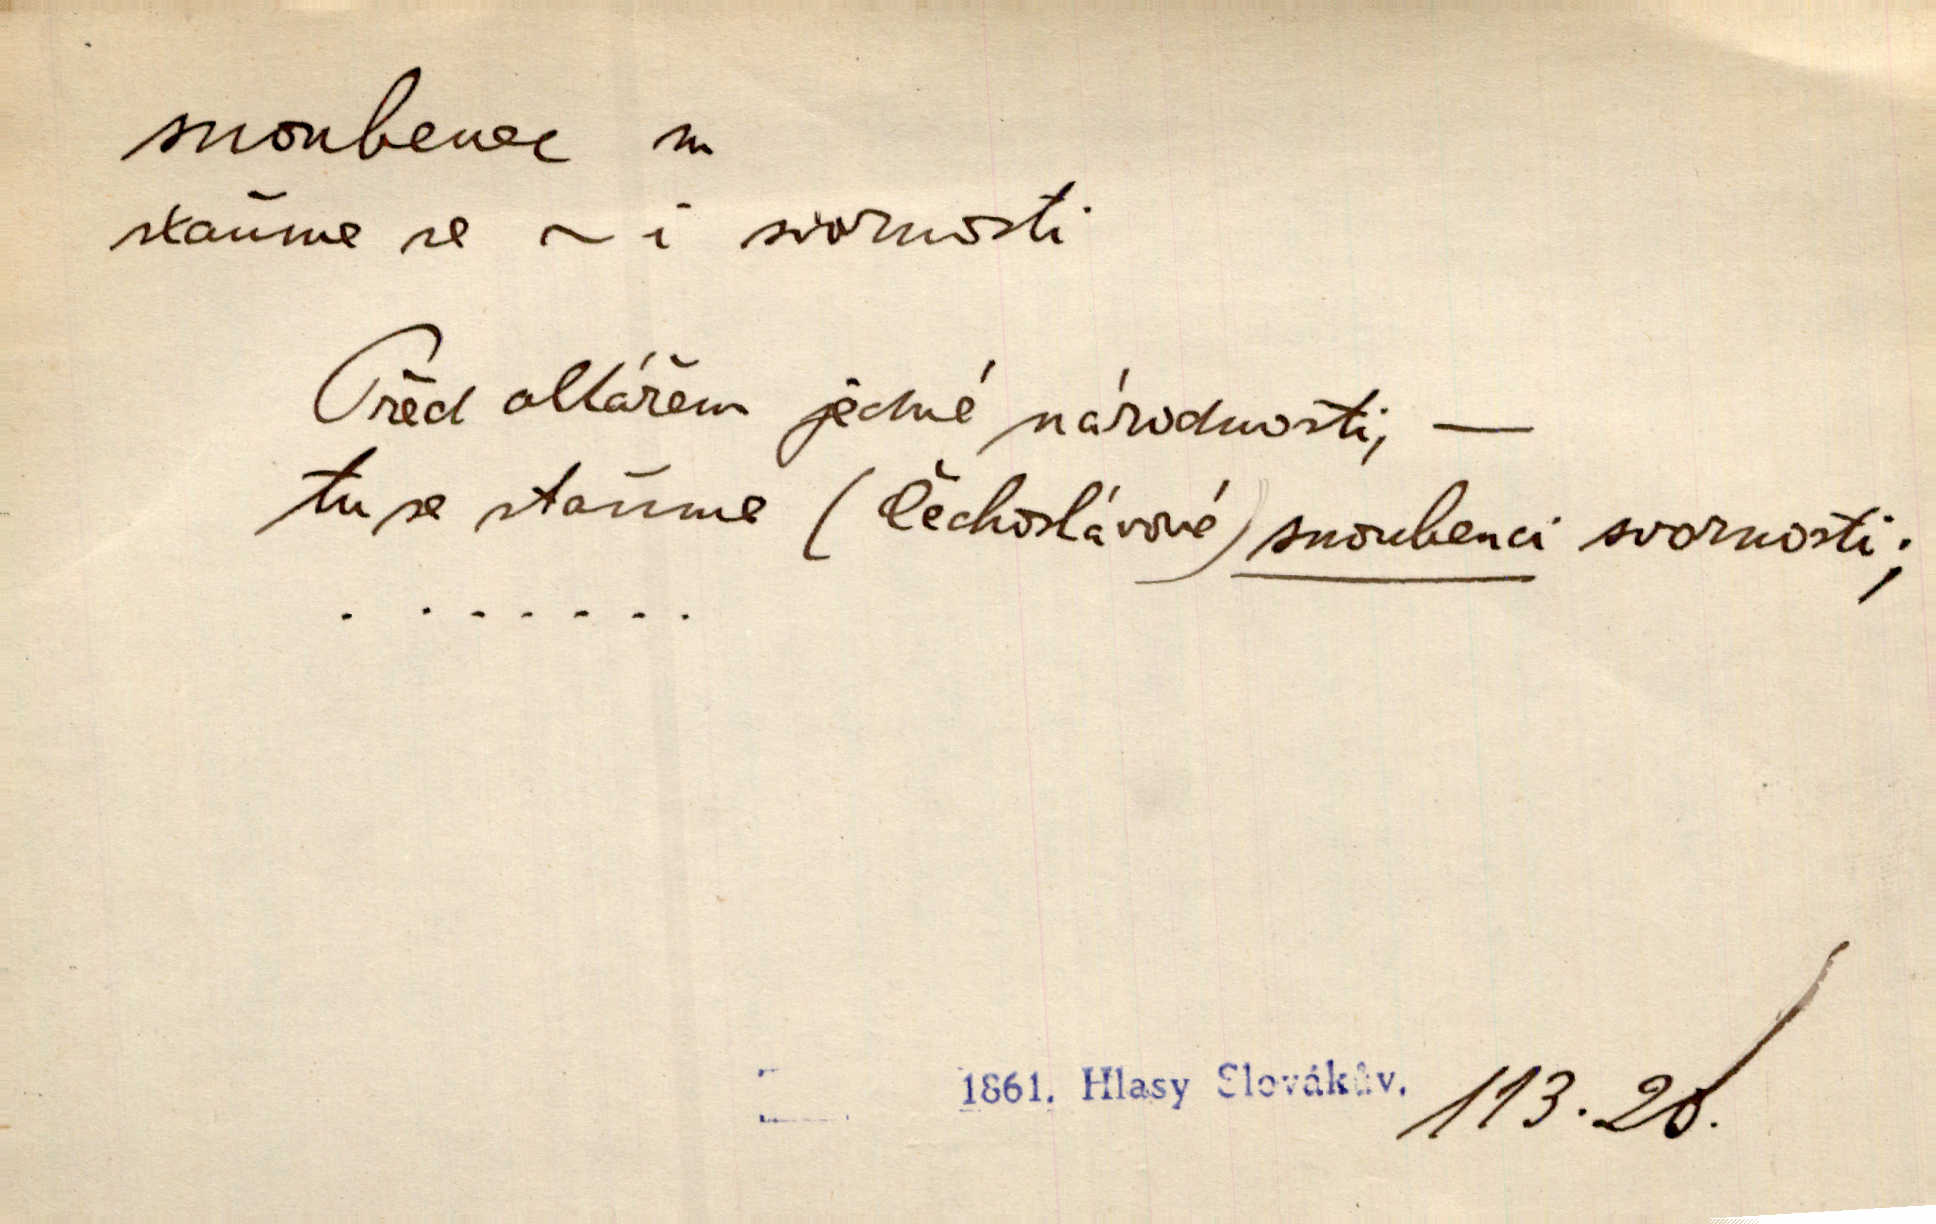 snoubenec m
staňme se ~i svornosti
Před oltářem jedné národnosti, —
tu se staňme (Čechoslávové) snoubenci svornosti;
. . . . . . . .
1861. Hlasy Slovákův. 113.20.